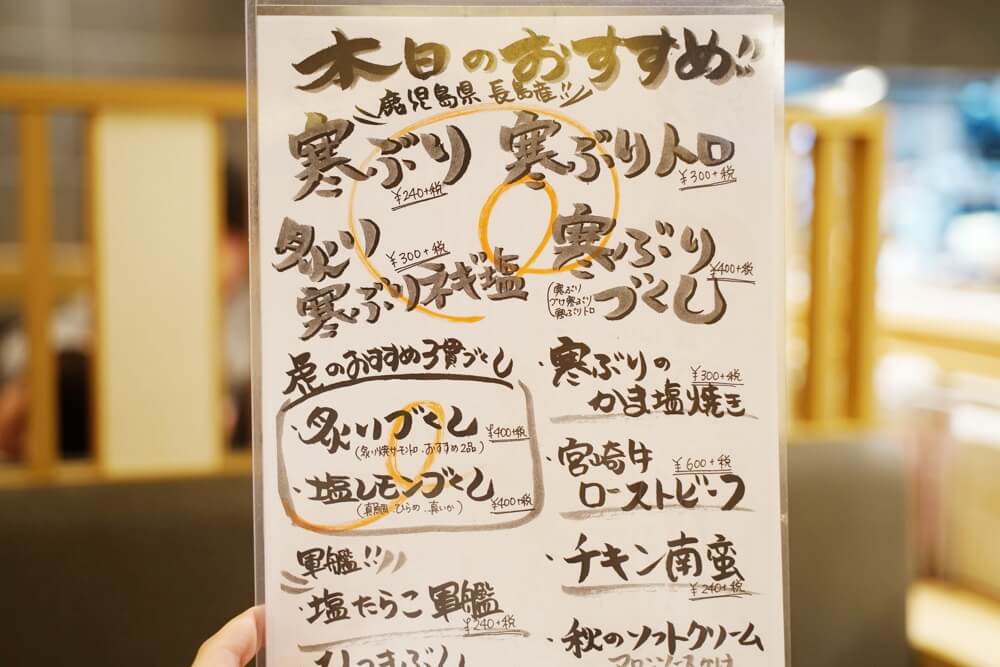 本日のおすすめ!!
鹿児島県 長島産!!
寒ぶり
¥240+税
寒ぶりトロ
¥300+税
炙り
¥300+税
寒ぶりネギ塩
寒ぶり
づくし
¥400+税
寒ぶり
づけ寒ぶり
寒ぶりトロ
虎のおすすめ3貫づくし
炙りづくし
¥400+税
(炙り焼サーモントロ、おすすめ2品)
塩レモンづくし
¥400+税
(真鯛、ひらめ、真いか)
軍艦!!
塩たらこ軍艦
¥240+税
・寒ぶりの
かま塩焼き
¥300+税
・宮崎牛
ローストビーフ
¥600+税
・チキン南蛮
¥240+税
・秋のソフトクリーム